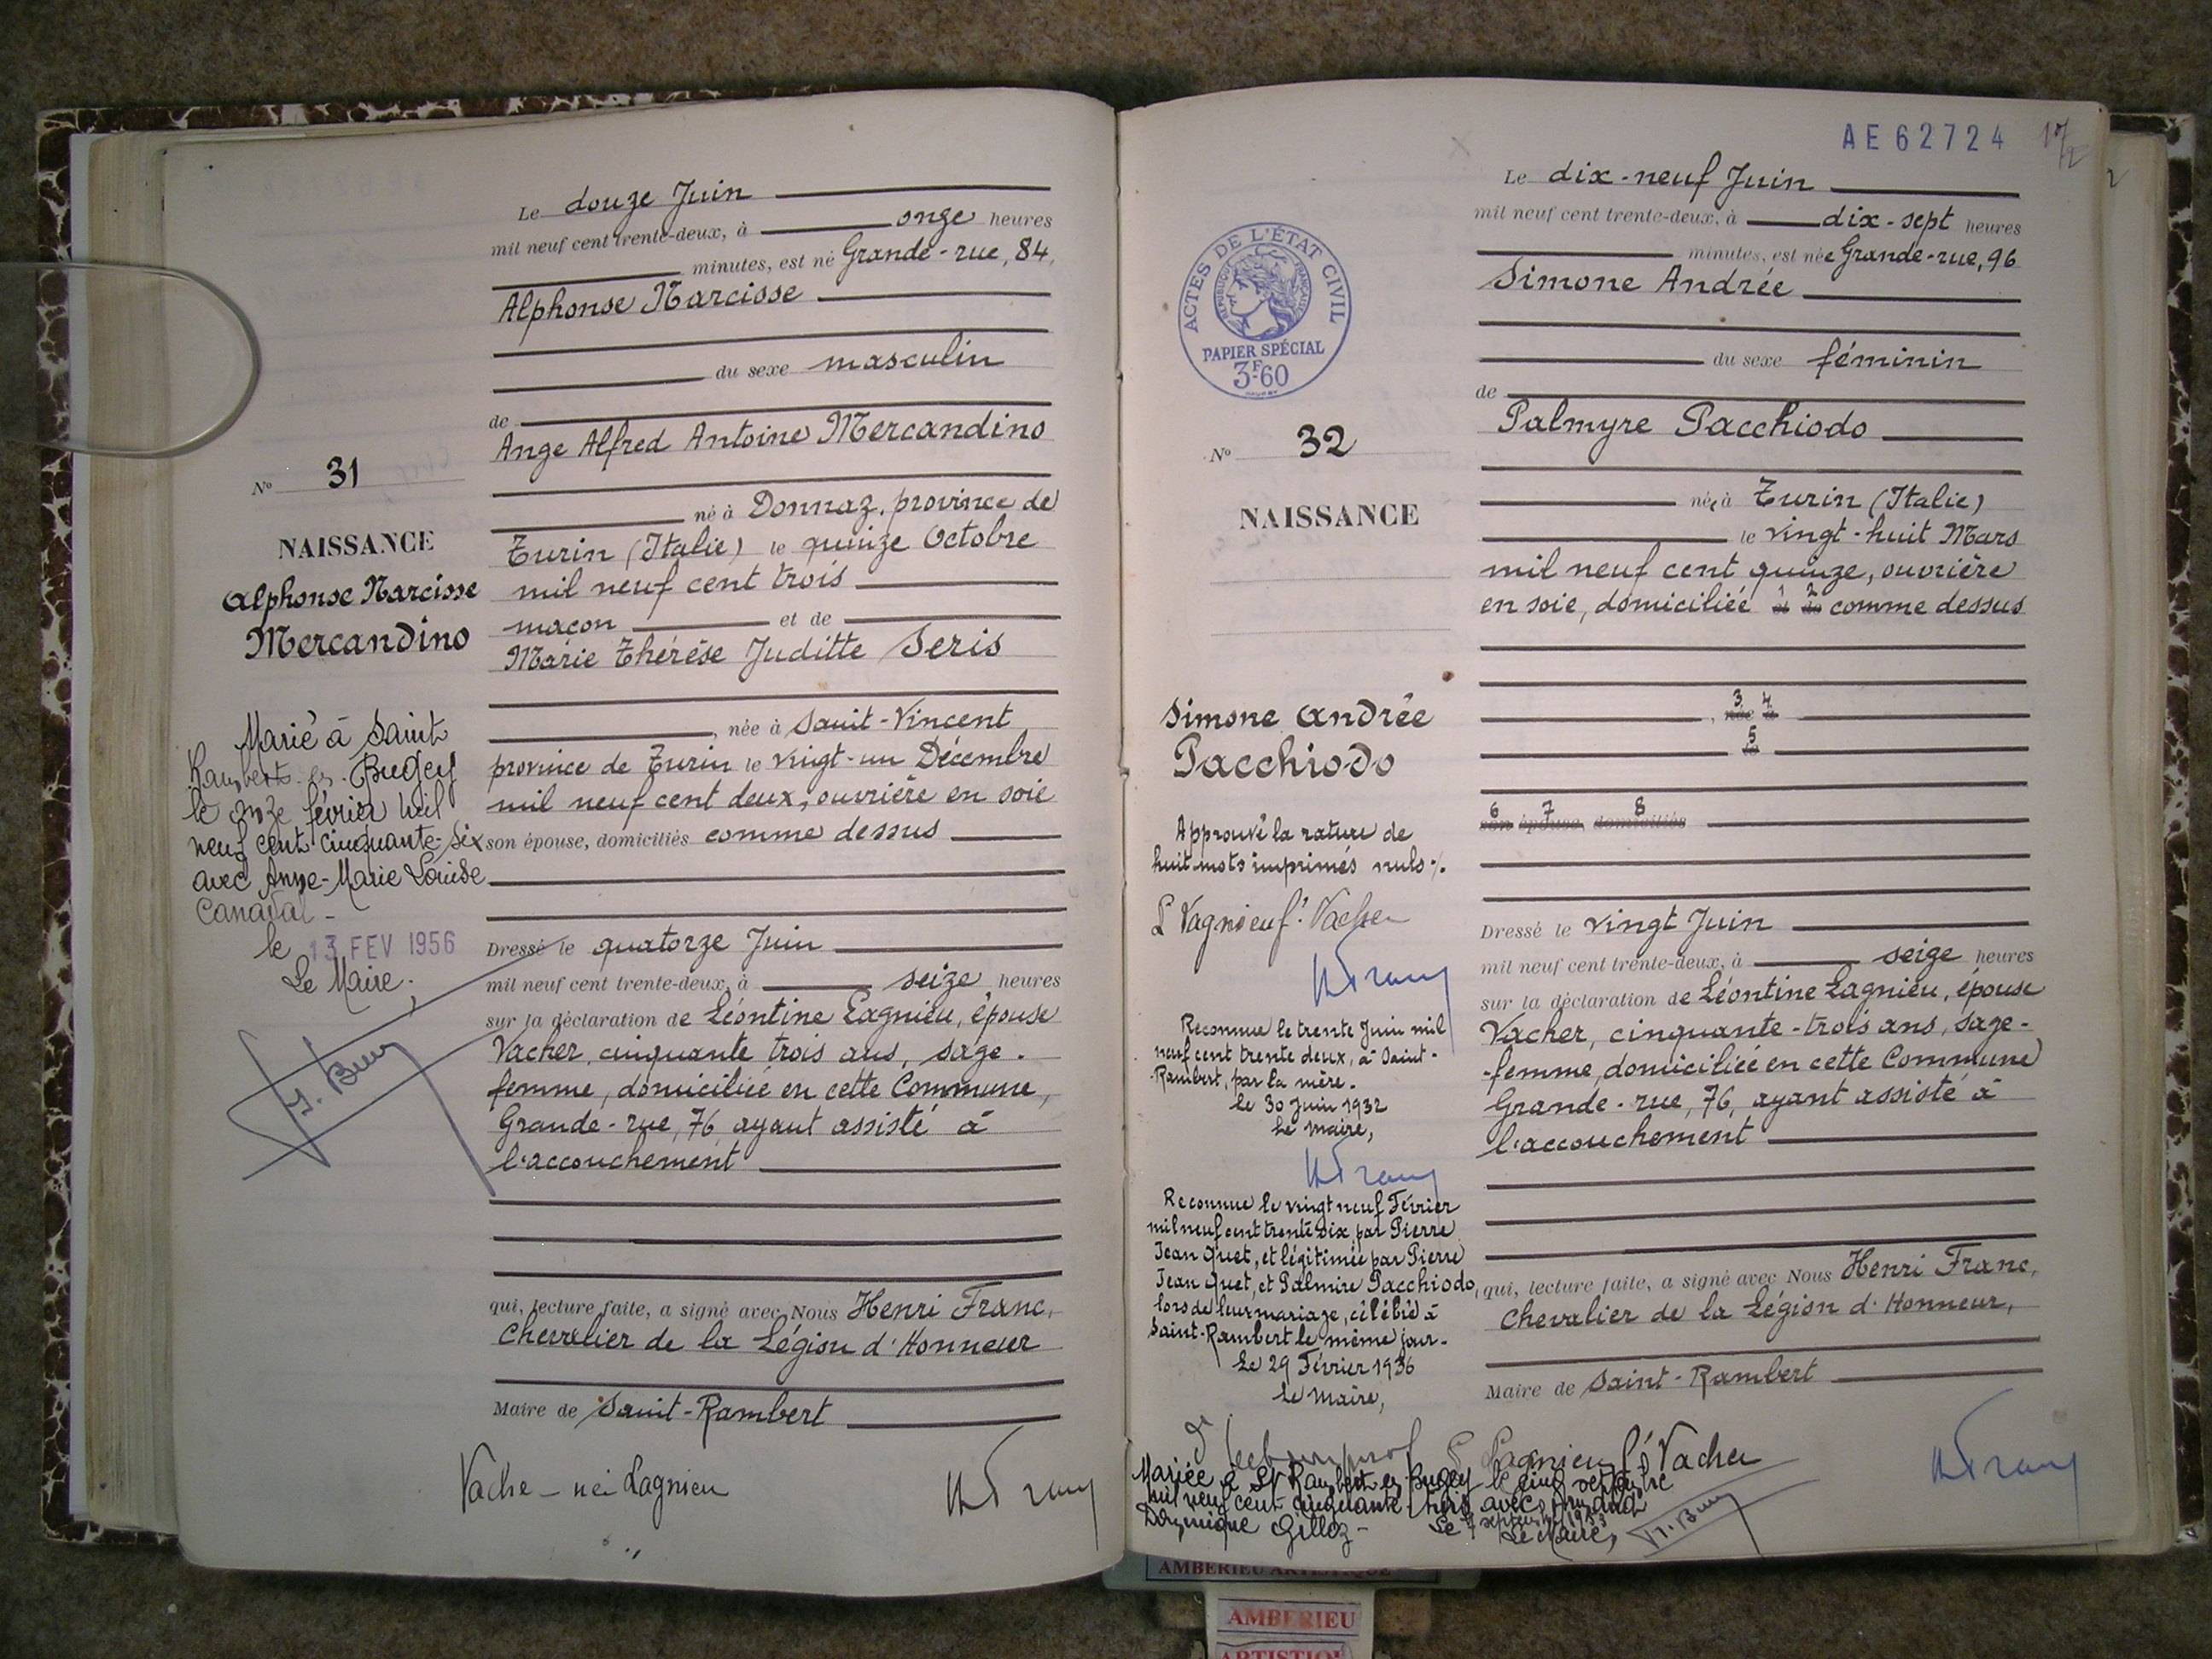 Le douze Juin
mil neuf cent trente-deux, à onze heures
minutes, est né Grande-rue, 84,
Alphonse Narcisse
du sexe masculin
de
Ange Alfred Antoine Mercandino
né à Donnaz, province de
Turin (Italie) le quinze Octobre
mil neuf cent trois
maçon et de
Marie Thérèse Juditte Seris
, née à Saint-Vincent
province de Turin le vingt-un Décembre
mil neuf cent deux, ouvrière en soie
son épouse, domiciliés comme dessus
Dressé le quatorze Juin
mil neuf cent trente-deux, à seize heures
sur la déclaration de Léontine Lagnieu, épouse
Vacher, cinquante trois ans, sage-
femme, domiciliée en cette Commune,
Grande-rue, 76, ayant assisté à
l'accouchement
qui, lecture faite, a signé avec Nous Henri Franc,
Chevalier de la Légion d'Honneur
Maire de Saint-Rambert
Vache - née Lagnieu
HFranc
N° 31
NAISSANCE
Alphonse Narcisse
Mercandino
Marié à Saint
Rambert-en-Bugey
le onze février mil
neuf cent cinquante-six
avec Anne-Marie Louise
le 13 FEV 1956
Le Maire,
AE 62724
Le dix-neuf Juin
mil neuf cent trente-deux, à dix-sept heures
minutes, est née Grande-rue, 96
Simone Andrée
du sexe féminin
de
Palmyre Pacchiodo
née à Turin (Italie)
le vingt-huit Mars
mil neuf cent quinze, ouvrière
en soie, domiciliée et de comme dessus
1 2
3 4
, née à
5
le
6 7 8
son épouse, domiciliés
Dressé le vingt Juin
mil neuf cent trente-deux, à seize heures
sur la déclaration de Léontine Lagnieu, épouse
Vacher, cinquante-trois ans, sage-
-femme, domiciliée en cette Commune
Grande-rue, 76, ayant assisté à
l'accouchement
qui, lecture faite, a signé avec Nous Henri Franc,
Chevalier de la Légion d'Honneur,
Maire de Saint-Rambert
L Lagnieu f. Vacher
HFranc
ACTES DE L'ÉTAT CIVIL
RÉPUBLIQUE FRANÇAISE
PAPIER SPÉCIAL
3F60
N° 32
NAISSANCE
Simone Andrée
Pacchiodo
Approuvé la rature de
huit mots imprimés nuls %.
L Lagnieu f. Vacher
HFranc
Reconnue le trente Juin mil
neuf cent trente deux, à Saint-
-Rambert, par la mère.
Le 30 Juin 1932
Le Maire,
HFranc
Reconnue le vingt neuf Février
mil neuf cent trente six par Pierre
Jean Quet, et légitimée par Pierre
Jean Quet, et Palmire Pacchiodo,
lors de leur mariage, célébré à
Saint-Rambert le même jour-
Le 29 Février 1936
Le Maire,
Mariée à St Rambert en Bugey le cinq septembre
mil neuf cent cinquante trois avec Armand
Dominique Gilloz-
Le 7 septembre 1953
Le Maire,
AMBERIEU ARTISTIQUE
AMBERIEU
ARTISTIQUE